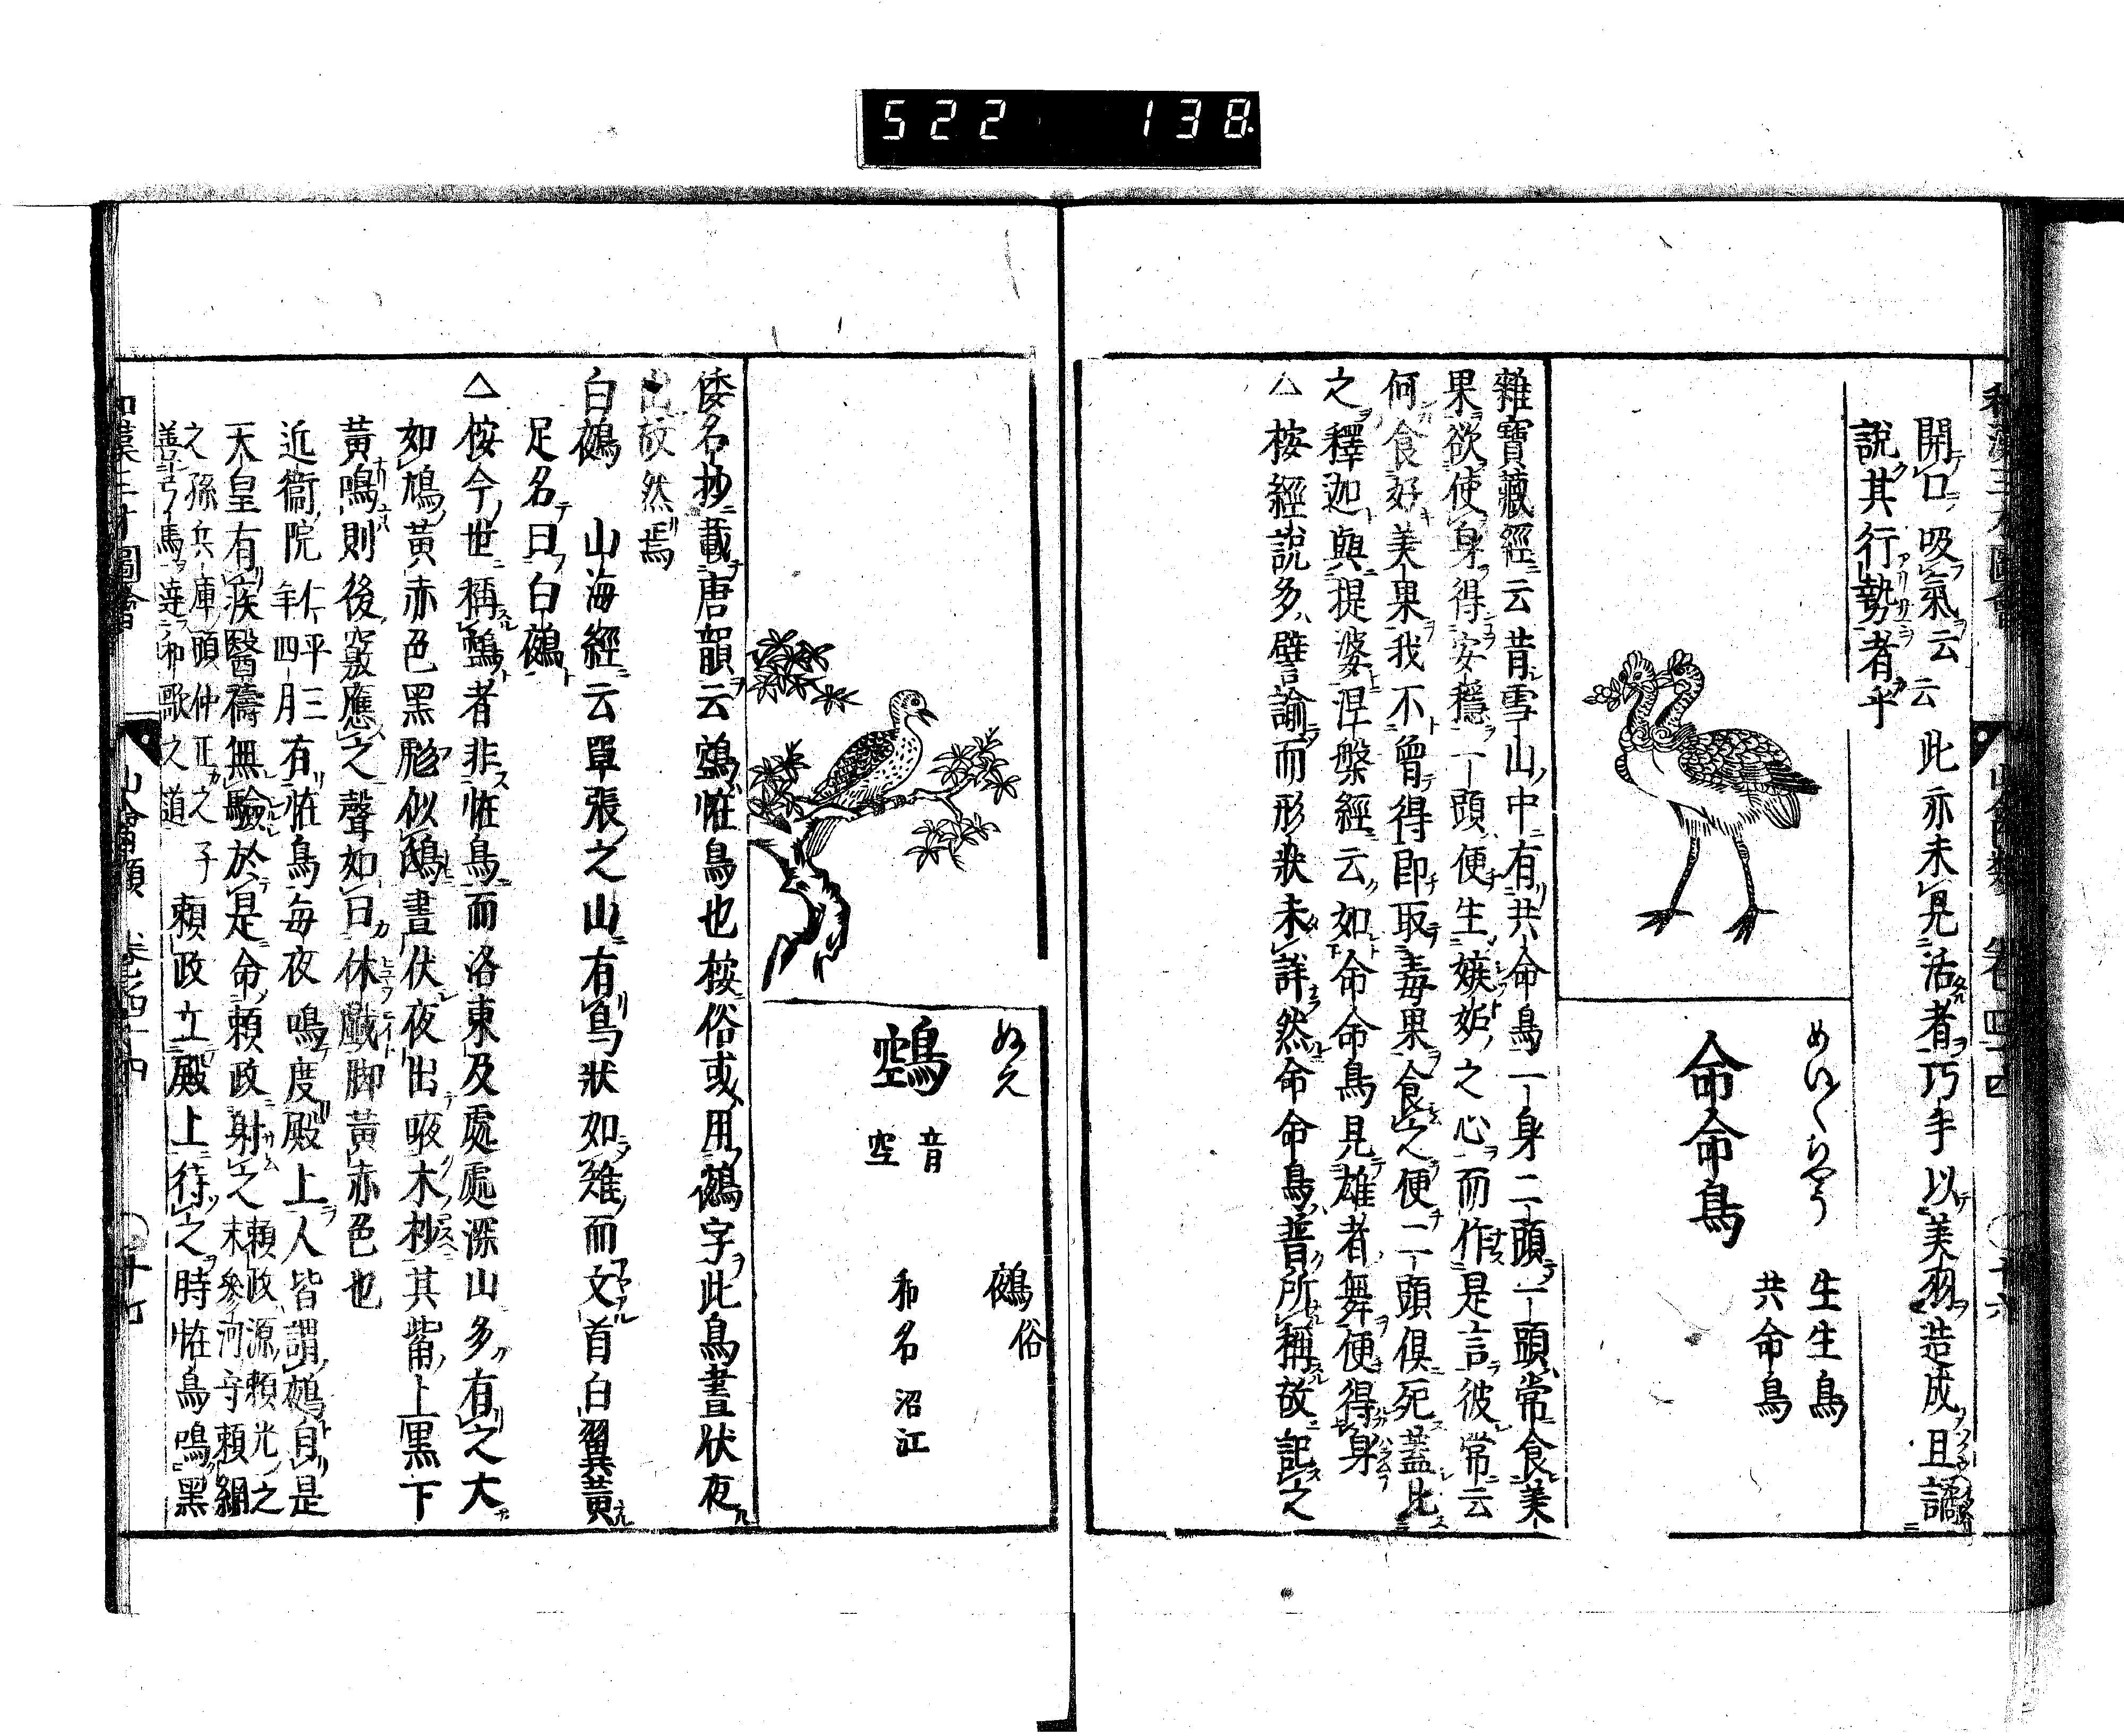 522 138
和漢三才圖會 山禽類 卷之四十四 ○十六
開口吸氣云云此亦未見活者巧手以美羽造成且謟
說其行勢者乎
めい〱ちやう
命命鳥
生生鳥
共命鳥
雜寶藏經云昔雪山中有共命鳥一身二頭一頭常食美
果欲使身得安穩一頭便生嫉妬之心而作是言彼常云
何食好美果我不曾得即取毒果食之便二頭俱死蓋比
之釋迦與提婆涅槃經云如命命鳥見雄者舞便得身
△按經說多譬諭而形狀未詳然命命鳥普所稱故記之
ぬえ
鵼
音空
鵺俗
和名沼江
倭名抄載唐韻云鵼恠鳥也按俗或用鵺字此鳥晝伏夜
出故然焉
白鵺 山海經云單張之山有鳥狀如雉而文首白翼黃
足名曰白鵺
△按今世稱鵼者非恠鳥而洛東及處處深山多有之大
如鳩黃赤色黑彪似鴟晝伏夜出啼木杪其觜上黑下
黃鳴則後竅應之聲如曰休戲脚黃赤色也
近衞院仁平三年四月有恠鳥每夜鳴度殿上人皆謂鵺自是
天皇有疾醫禱無驗於是命賴政射之賴政源賴光之末參河守賴綱
之孫兵庫頭仲正之子善弓馬達和歌之道賴政立殿上待之時恠鳥鳴黑
和漢三才圖會 山禽類 卷之四十四